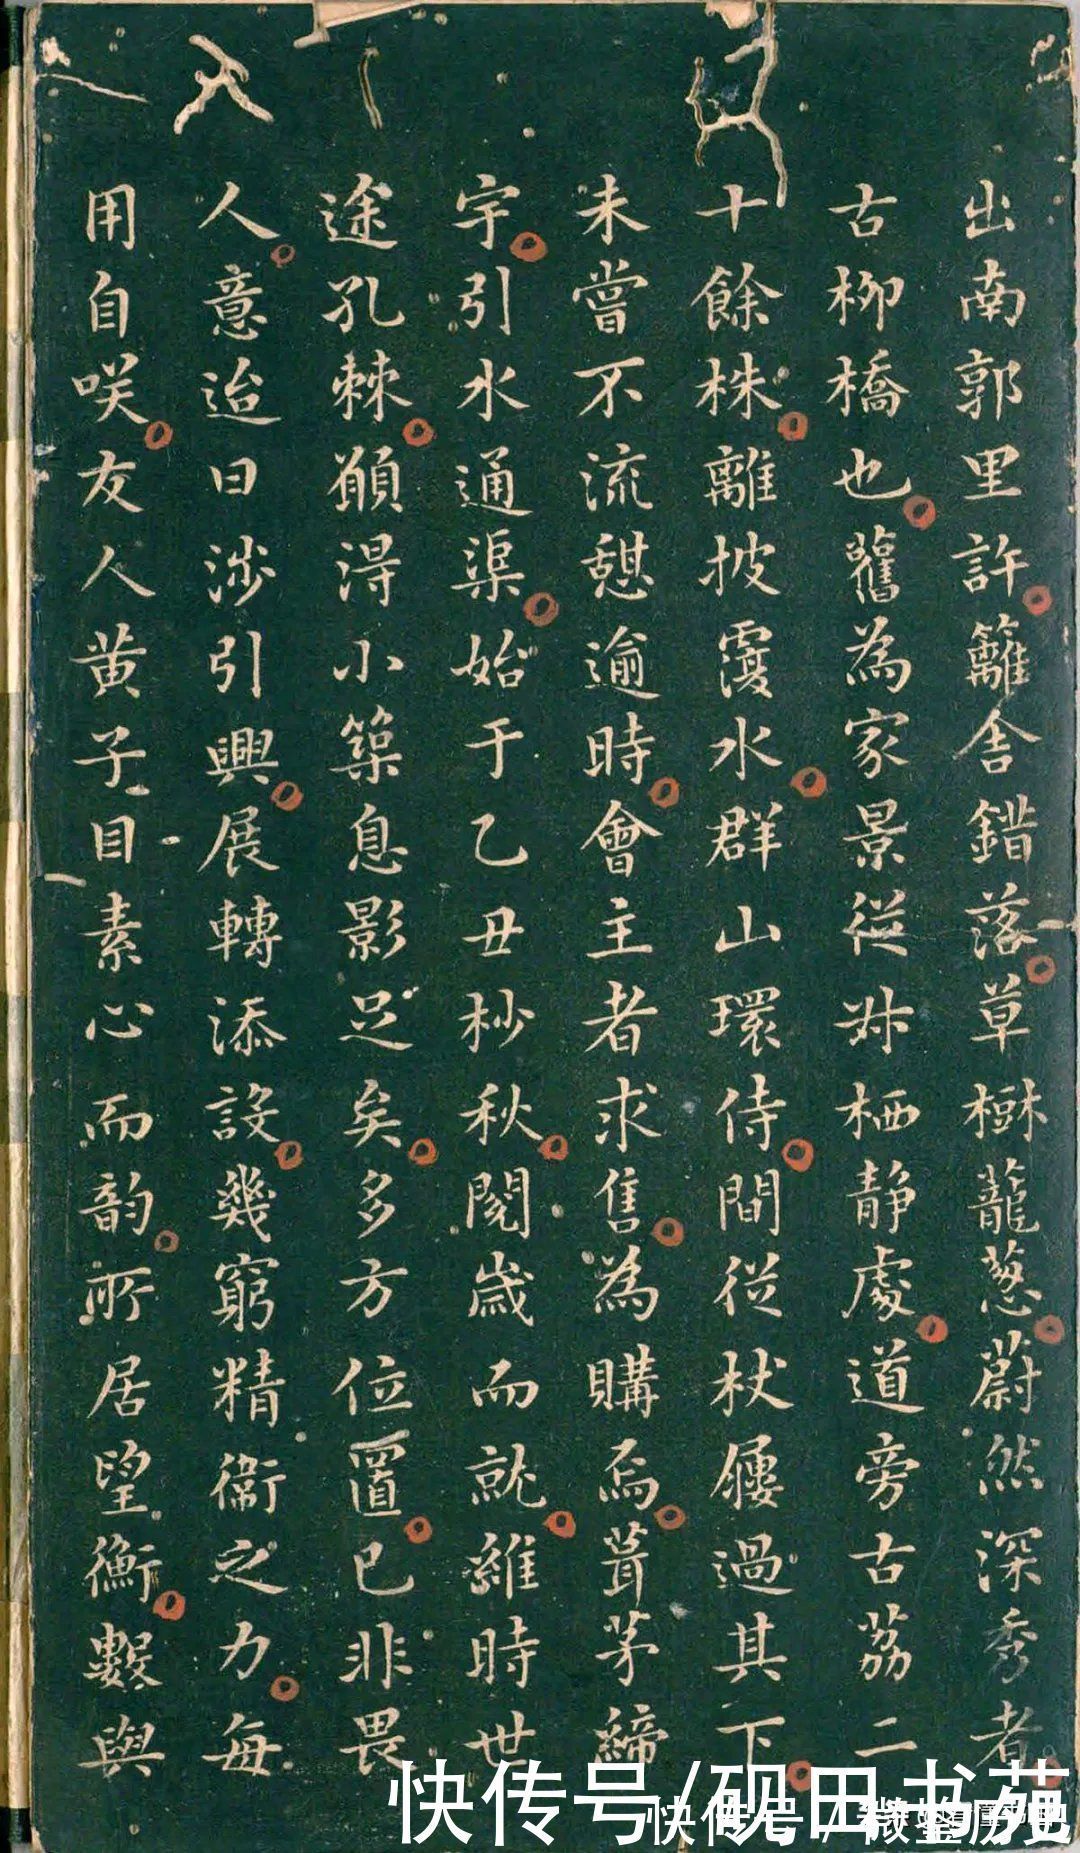 出南郭里許籬舍錯落草樹蘢蔥蔚然深秀者
古柳橋也舊為家景從叔栖靜處道旁古荔二
十餘株離披覆水群山環侍間從杖屨過其下
未嘗不流憩逾時會主者求售為購焉葺茅締
宇引水通渠始于乙丑杪秋閱歲而就維時世
途孔棘願得小築息影足矣多方位置已非畏
人意迨日涉引興展轉添設幾窮精衞之力每
用自咲友人黃子目素心而韵所居望衡數與
快传号/砚田书苑